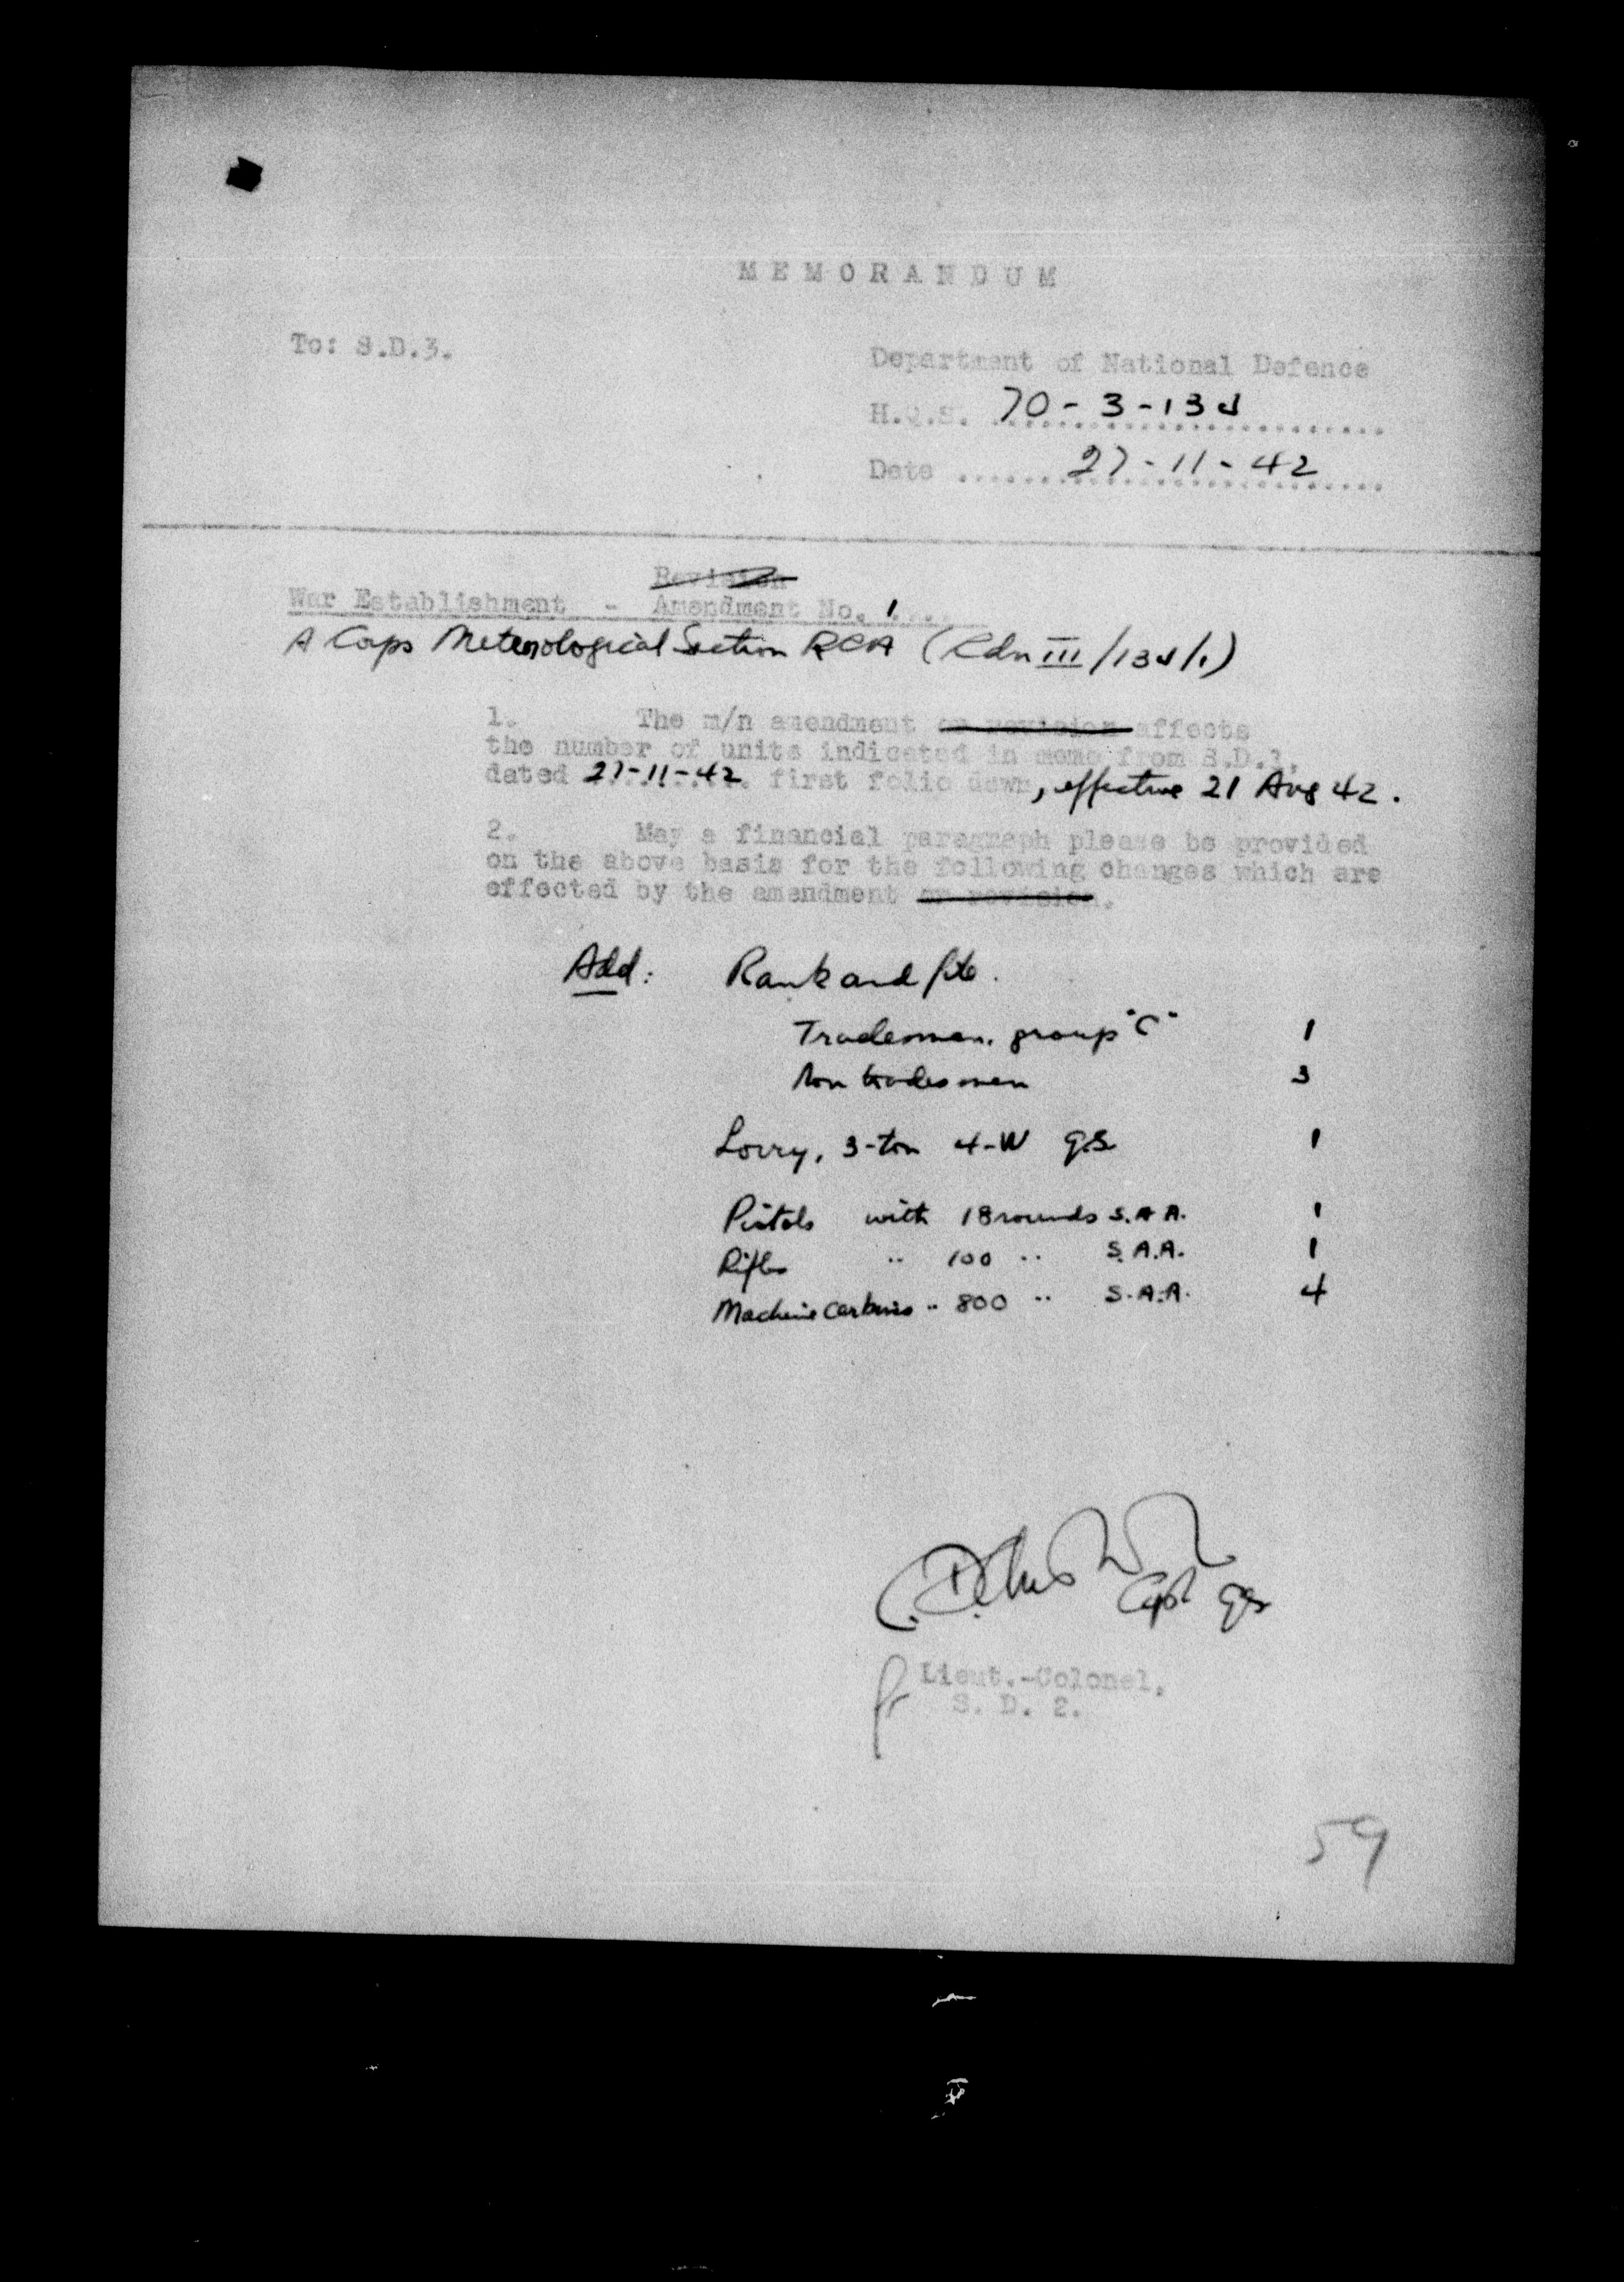 MEMORANDUM
To: S.D.3.
Department of National Defence
H.Q.S. 70-3-13
Date ..... 27-11-42
Revision
War Establishment - Amendment No. 1...
A Corps Meterological Section RCA (Cdn III/13
1. The m/n amendment or revision affects
the number of units indicated in memo from S.D.
dated 27-11-42. first folio down, effective 21 Aug 42.
2. May a financial paragraph please be provided
on the above basis for the following changes which are
effected by the amendment or revision.
Add: Rank and file.
Tradesmen, group "C" 1
Non tradesmen 3
Lorry, 3-ton 4-W G.S. 1
Pistols with 18 rounds S.A.A. 1
Rifles " 100 " S.A.A. 1
Machine Carbines " 800 " S.A.A. 4
Capt GS
fr Lieut.-Colonel.
S. D. 2.
59